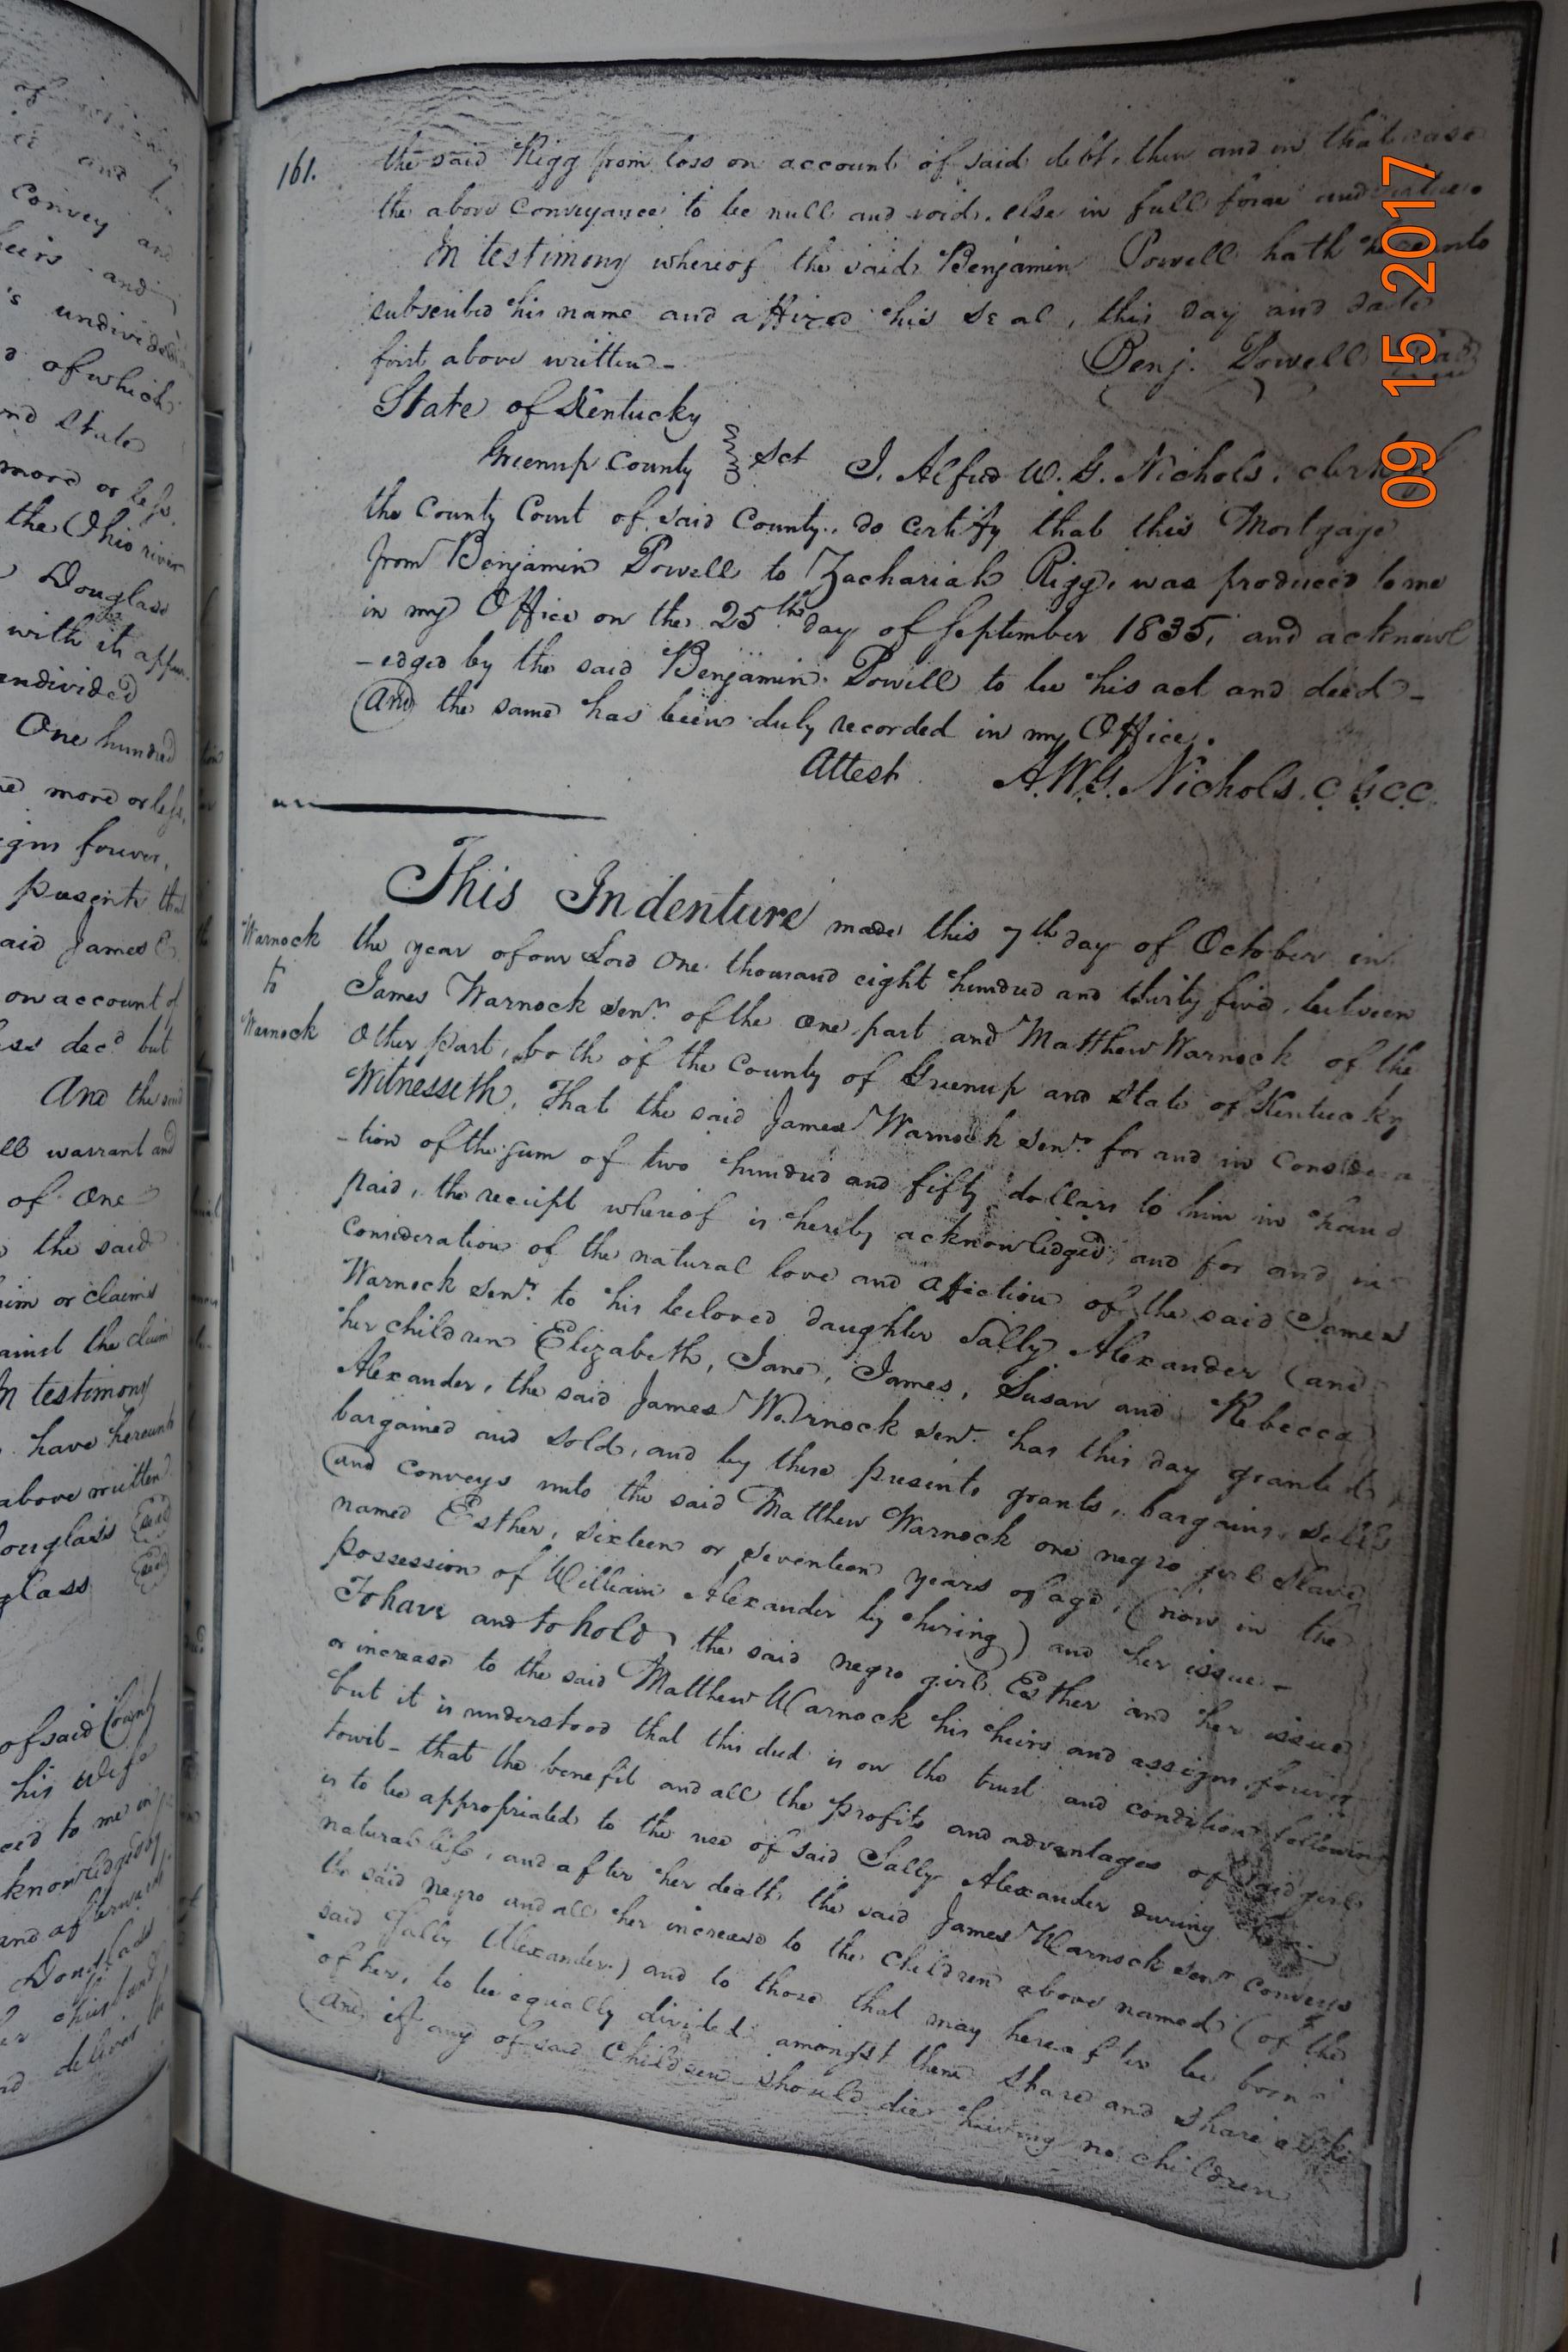 of
and
Convey and
heirs and
's undivided
of which
and State
more or less,
the Ohio river
Douglass
with its appur
undivided
One hundred
more or less,
forever,
presents that
said James
on account of
decd but
And the said
warrant and
of One
the said
him or claims
against the claim
In testimony
have hereunto
above written
Douglass Seal
glass Seal
of said County
his wife
to me in
knowledged by
and afterwards
Douglass
her husband
deliver the
161.
the said Rigg from loss on account of said debt, then and in that case
the above Conveyance to be null and void, else in full force and virtue.
In testimony whereof the said Benjamin Powell hath hereunto
subscribed his name and affixed his Seal, this day and date
first above written -
Benj. Powell Seal
State of Kentucky
Greenup County Sct I, Alfred W. G. Nichols, clerk of
the County Court of said County, do certify that this Mortgage
from Benjamin Powell to Zachariah Rigg, was produced to me
in my Office on the 25th day of September 1835, and acknowl
-edged by the said Benjamin Powell to be his act and deed -
And the same has been duly recorded in my Office.
Attest A. W. G. Nichols. C G C C.
This Indenture made this 7th day of October in
Warnock
to
Warnock
the year of our Lord One thousand eight hundred and thirty five, between
James Warnock Senr. of the one part and Matthew Warnock of the
Other part, both of the County of Greenup and State of Kentucky
Witnesseth, That the said James Warnock Senr. for and in Considera
-tion of the sum of two hundred and fifty dollars to him in hand
paid, the receipt whereof is hereby acknowledged, and for and in
Consideration of the natural love and affection of the said James
Warnock Senr. to his beloved daughter Sally Alexander (and
her children Elizabeth, Jane, James, Susan and Rebecca
Alexander, the said James Warnock Senr. has this day granted
bargained and sold, and by these presents grants, bargains, sells
and conveys unto the said Matthew Warnock one negro girl Slave
named Esther, sixteen or seventeen years of age, (now in the
possession of William Alexander by hiring) and her issue -
To have and to hold the said negro girl Esther and her issue
or increase to the said Matthew Warnock his heirs and assigns forever
but it is understood that this deed is on the trust and conditions following
towit - that the benefit and all the profits and advantages of said girl
is to be appropriated to the use of said Sally Alexander during
natural life, and after her death the said James Warnock Senr conveys
the said negro and all her increase to the children above named (of the
said Sally Alexander) and to those that may hereafter be born
of her, to be equally divided amongst them Share and Share alike
And if any of said Children should die having no children
09 15 2017